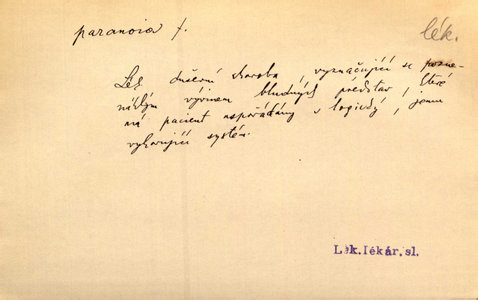 paranoia f.
lék.
Lék. duševní choroba, vyznačující se pozne-
náhlým vývinem bludných představ, které
má pacient uspořádány v logický, jemu
vyhovující systém.
Lék.lékár.sl.